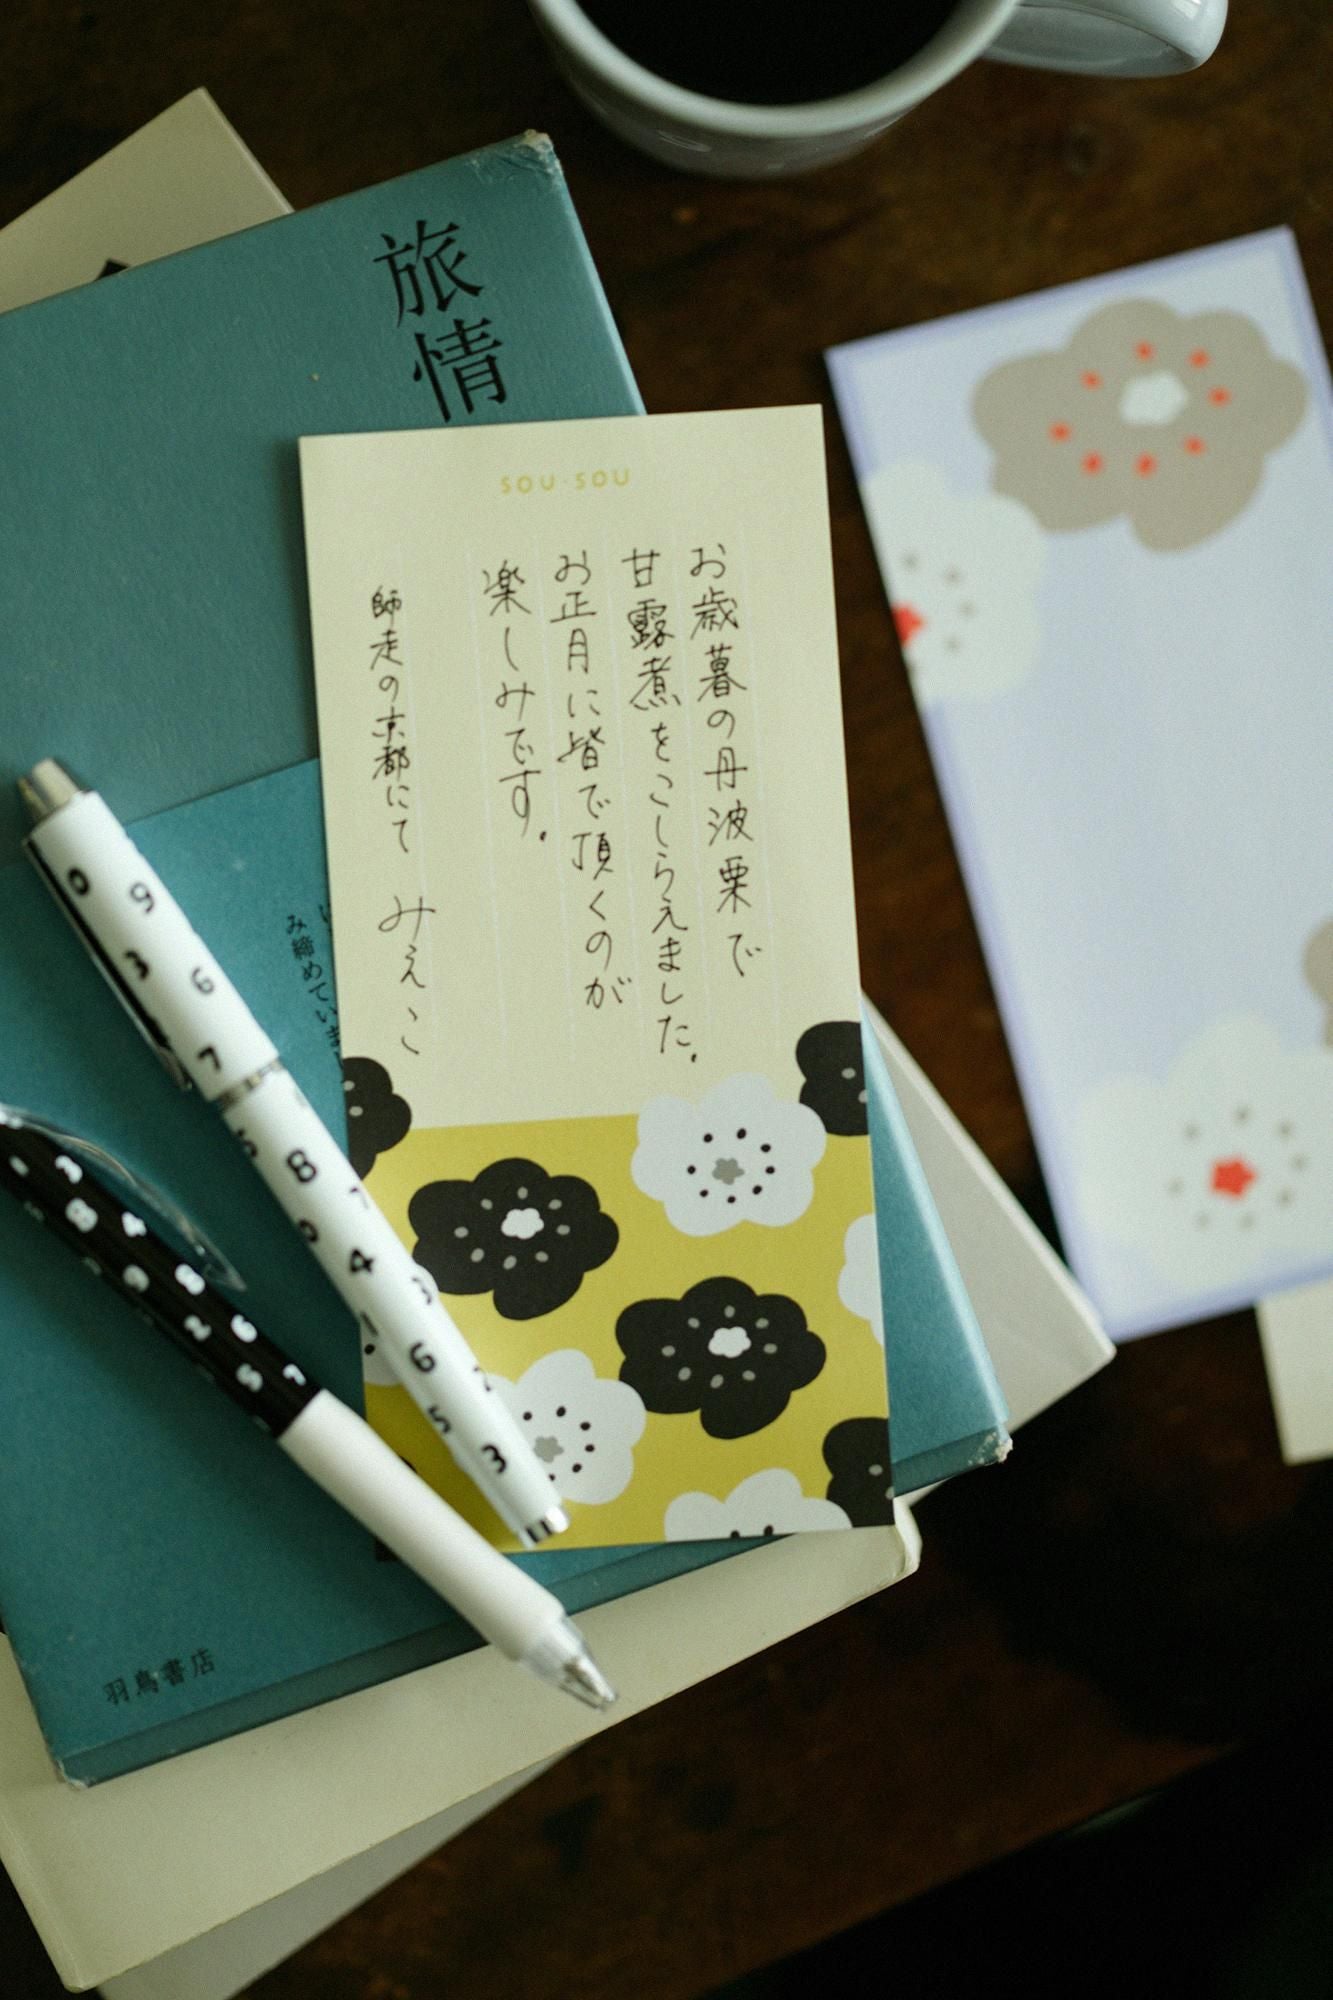 旅情
SOU・SOU
お歳暮の丹波栗で
甘露煮をこしらえました。
お正月に皆で頂くのが
楽しみです。
師走の京都にて みえこ
み締めていまし
羽鳥書店
0 9
3 6
7
8
4 3
6
5
3